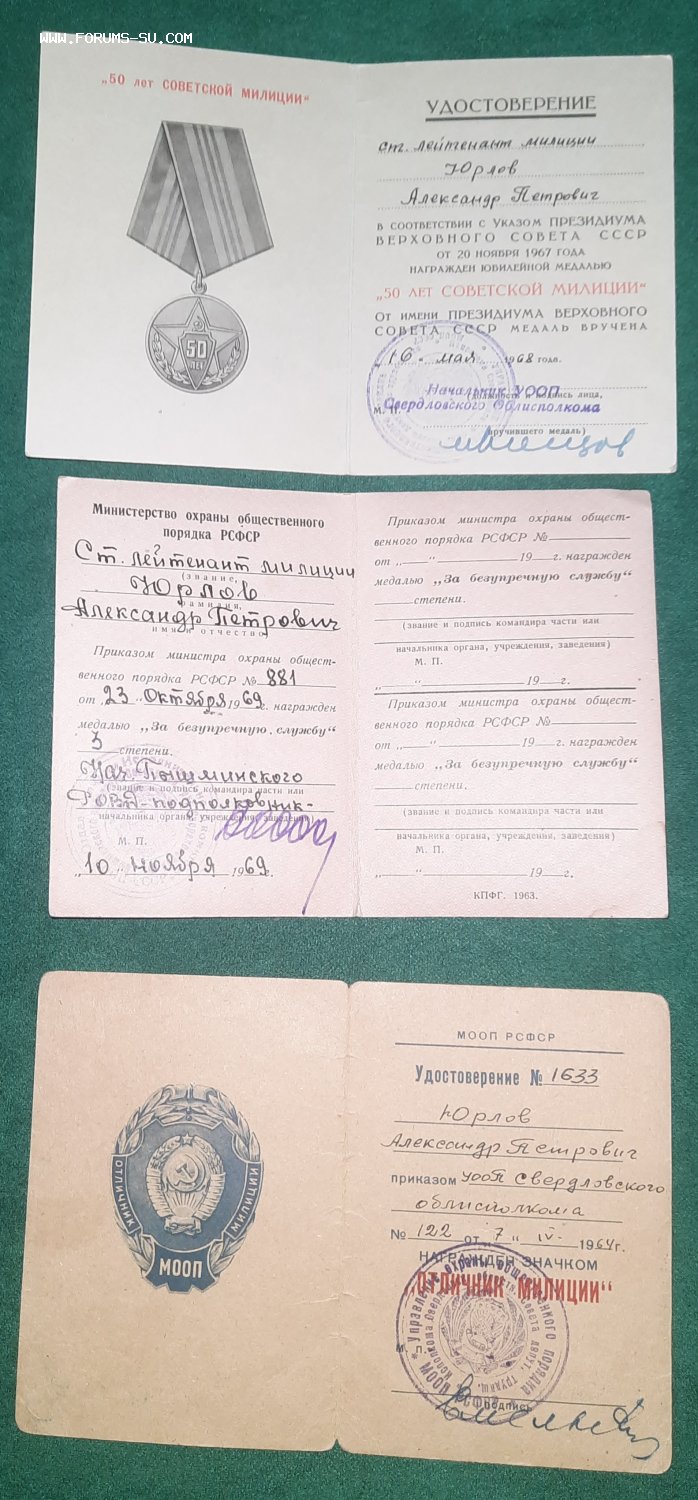 www.FORUMS-SU.COM
„50 лет СОВЕТСКОЙ МИЛИЦИИ"
50
ЛЕТ
УДОСТОВЕРЕНИЕ
ст. лейтенант милиции
Юрлов
Александр Петрович
В СООТВЕТСТВИИ С УКАЗОМ ПРЕЗИДИУМА
ВЕРХОВНОГО СОВЕТА СССР
ОТ 20 НОЯБРЯ 1967 ГОДА
НАГРАЖДЕН ЮБИЛЕЙНОЙ МЕДАЛЬЮ
„50 ЛЕТ СОВЕТСКОЙ МИЛИЦИИ"
ОТ ИМЕНИ ПРЕЗИДИУМА ВЕРХОВНОГО
СОВЕТА СССР МЕДАЛЬ ВРУЧЕНА
16 - мая 1968 года.
Начальник УООП
(должность и подпись лица,
Свердловского Облисполкома
М. П.
вручившего медаль)
Министерство охраны общественного
порядка РСФСР
Ст. лейтенант милиции
(звание,
Юрлов
фамилия,
Александр Петрович
имя и отчество)
Приказом министра охраны общест-
венного порядка РСФСР № 881
от „23" Октября 1969 г. награжден
медалью „За безупречную службу"
3 степени.
Нач. Пышминского
(звание и подпись командира части или
РОВД-подполковник-
начальника органа, учреждения, заведения)
М. П.
„10" ноября 1969 г.
Приказом министра охраны общест-
венного порядка РСФСР №
от „ " 19 г. награжден
медалью „За безупречную службу"
степени.
(звание и подпись командира части или
начальника органа, учреждения, заведения)
М. П.
„ " 19 г.
Приказом министра охраны общест-
венного порядка РСФСР №
от „ " 19 г. награжден
медалью „За безупречную службу"
степени.
(звание и подпись командира части или
начальника органа, учреждения, заведения)
М. П.
„ " 19 г.
КПФГ. 1963.
ОТЛИЧНИК МИЛИЦИИ
МООП
МООП РСФСР
Удостоверение № 1633
Юрлов
Александр Петрович
приказом УООП Свердловского
облисполкома
№ 122 от „7" IV- 1964 г.
НАГРАЖДЕН ЗНАЧКОМ
"ОТЛИЧНИК МИЛИЦИИ"
Управление охраны общественного порядка
м. п.
подпись